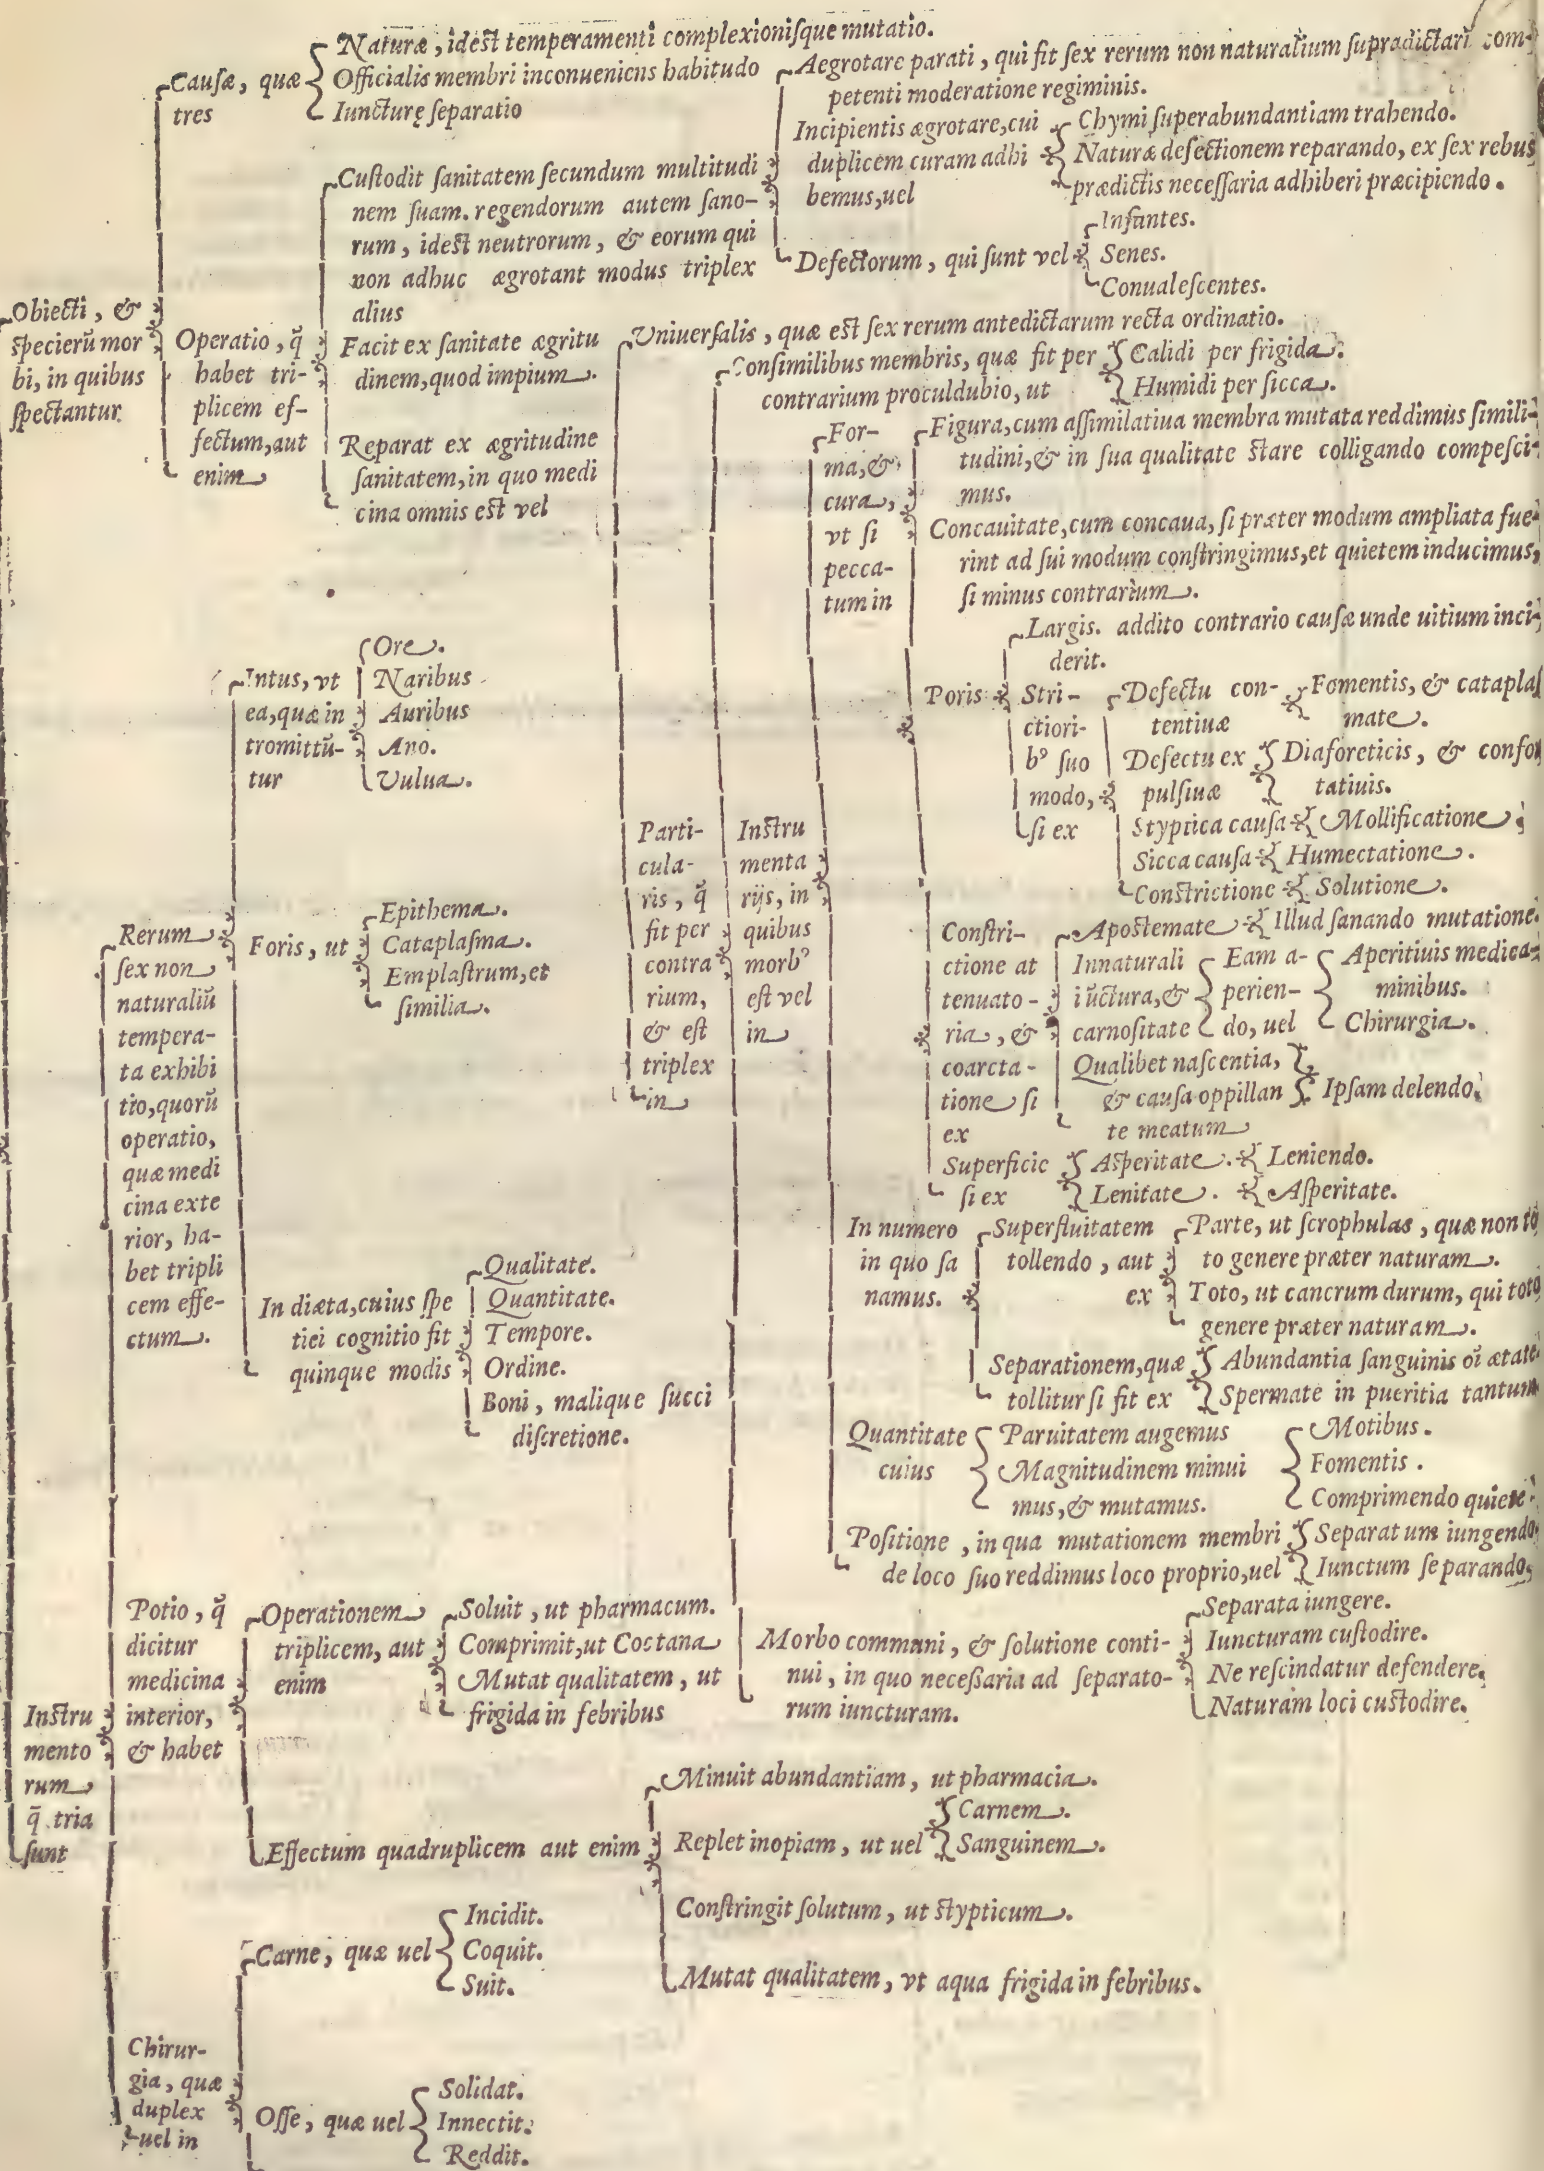 Obiecti, &
specierū mor
bi, in quibus
spectantur
Causæ, quæ
tres
Naturæ, idest temperamenti complexionisque mutatio.
Officialis membri inconueniens habitudo
Iuncturę separatio
Operatio, q̄
habet tri-
plicem ef-
fectum, aut
enim
Custodit sanitatem secundum multitudi
nem suam. regendorum autem sano-
rum, idest neutrorum, & eorum qui
non adhuc ægrotant modus triplex
alius
Aegrotare parati, qui fit sex rerum non naturalium supradictarū com-
petenti moderatione regiminis.
Incipientis ægrotare, cui
duplicem curam adhi
bemus, uel
Chymi superabundantiam trahendo.
Naturæ defectionem reparando, ex sex rebus
prædictis necessaria adhiberi præcipiendo.
Defectorum, qui sunt vel
Infantes.
Senes.
Conualescentes.
Facit ex sanitate ægritu
dinem, quod impium.
Reparat ex ægritudine
sanitatem, in quo medi
cina omnis est vel
Vniuersalis, quæ est sex rerum antedictarum recta ordinatio.
Parti-
cula-
ris, q̄
fit per
contra
rium,
& est
triplex
in
Consimilibus membris, quæ fit per
contrarium proculdubio, ut
Calidi per frigida.
Humidi per sicca.
Instru
menta
rijs, in
quibus
morb⁹
est vel
in
For-
ma, &
cura,
vt si
pecca-
tum in
Figura, cum assimilatiua membra mutata reddimus simili-
tudini, & in sua qualitate stare colligando compesci-
mus.
Concauitate, cum concaua, si præter modum ampliata fue-
rint ad sui modum constringimus, et quietem inducimus,
si minus contrarium.
Poris
Largis. addito contrario causæ unde uitium inci-
derit.
Stri-
ctiori-
b⁹ suo
modo,
si ex
Defectu con-
tentiuæ
Fomentis, & catapla
mate.
Defectu ex
pulsiuæ
Diaforeticis, & confo
tatiuis.
Styptica causa
Mollificatione
Sicca causa
Humectatione.
Constrictione
Solutione.
Constri-
ctione at
tenuato-
ria, &
coarcta-
tione si
ex
Apostemate
Illud sanando mutatione.
Innaturali
iūctura, &
carnositate
Eam a-
perien-
do, uel
Aperitiuis medica-
minibus.
Chirurgia.
Qualibet nascentia,
& causa oppillan
te meatum
Ipsam delendo.
Superficie
si ex
Asperitate.
Leniendo.
Lenitate.
Asperitate.
In numero
in quo sa
namus.
Superfluitatem
tollendo, aut
ex
Parte, ut scrophulas, quæ non to
to genere præter naturam.
Toto, ut cancrum durum, qui toto
genere præter naturam.
Separationem, quæ
tollitur si fit ex
Abundantia sanguinis oī ætate
Spermate in pueritia tantum
Quantitate
cuius
Paruitatem augemus
Magnitudinem minui
mus, & mutamus.
Motibus.
Fomentis.
Comprimendo quiete
Positione, in qua mutationem membri
de loco suo reddimus loco proprio, uel
Separatum iungendo
Iunctum separando,
Morbo communi, & solutione conti-
nui, in quo necessaria ad separato-
rum iuncturam.
Separata iungere.
Iuncturam custodire.
Ne rescindatur defendere.
Naturam loci custodire.
Instru
mento
rum
q̄ tria
sunt
Rerum
sex non
naturaliū
tempera-
ta exhibi
tio, quorū
operatio,
quæ medi
cina exte
rior, ha-
bet tripli
cem effe-
ctum.
Intus, vt
ea, quæ in
tromittū-
tur
Ore.
Naribus
Auribus
Ano.
Vulua.
Foris, ut
Epithema.
Cataplasma.
Emplastrum, et
similia.
In diæta, cuius spe
tiei cognitio fit
quinque modis
Qualitate.
Quantitate.
Tempore.
Ordine.
Boni, malique succi
discretione.
Potio, q̄
dicitur
medicina
interior,
& habet
Operationem
triplicem, aut
enim
Soluit, ut pharmacum.
Comprimit, ut Coctana
Mutat qualitatem, ut
frigida in febribus
Effectum quadruplicem aut enim
Minuit abundantiam, ut pharmacia.
Replet inopiam, ut uel
Carnem.
Sanguinem.
Constringit solutum, ut stypticum.
Mutat qualitatem, vt aqua frigida in febribus.
Chirur-
gia, quæ
duplex
uel in
Carne, quæ uel
Incidit.
Coquit.
Suit.
Osse, quæ uel
Solidat.
Innectit.
Reddit.